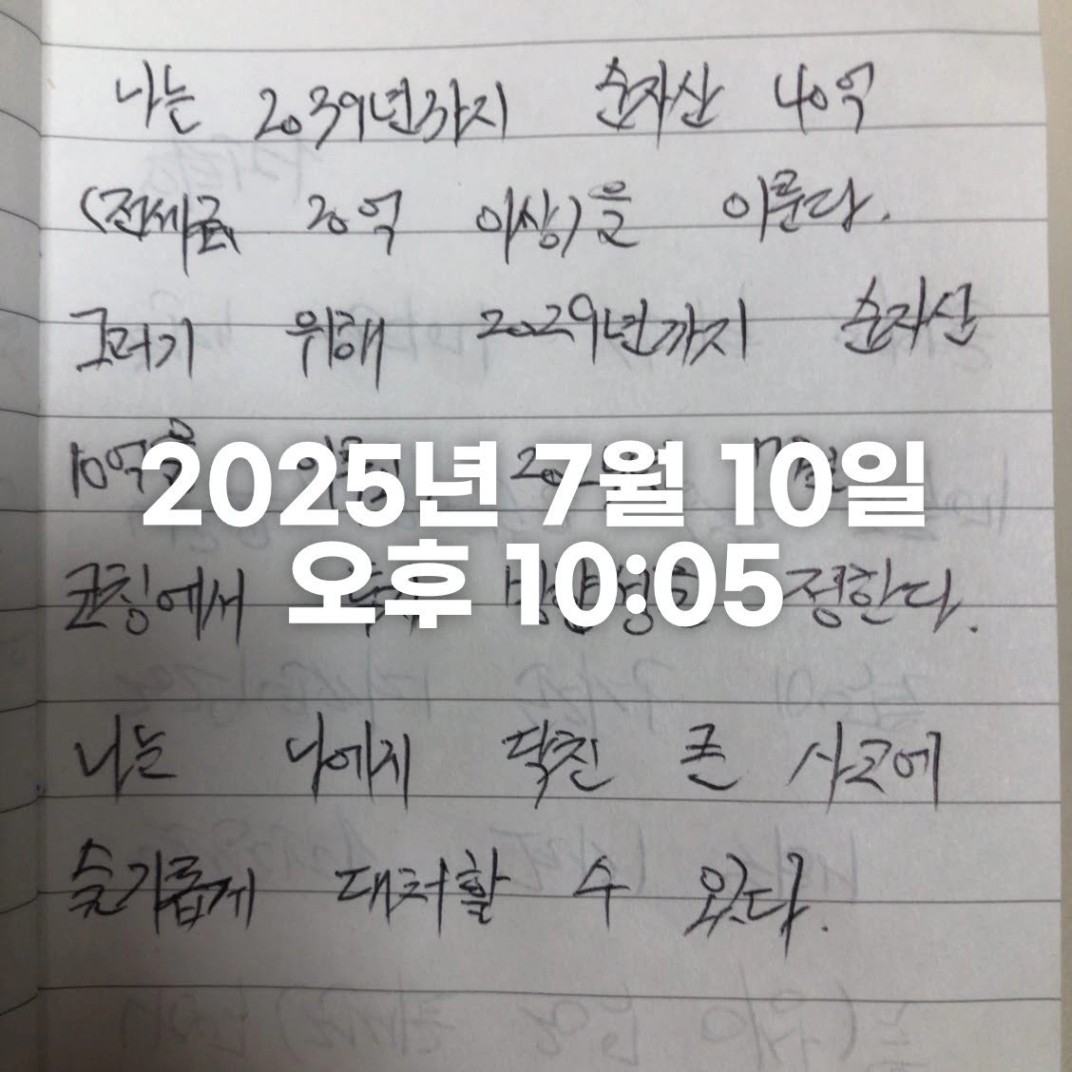 나는 2039년까지 순자산 40억
(전세금 20억 이상)을 이룬다.
그러기 위해 2029년까지 순자산
10억을
2025년 7월 10일
오후 10:05
코칭에서 정한다.
나는 나에게 닥친 큰 사고에
슬기롭게 대처할 수 있다.